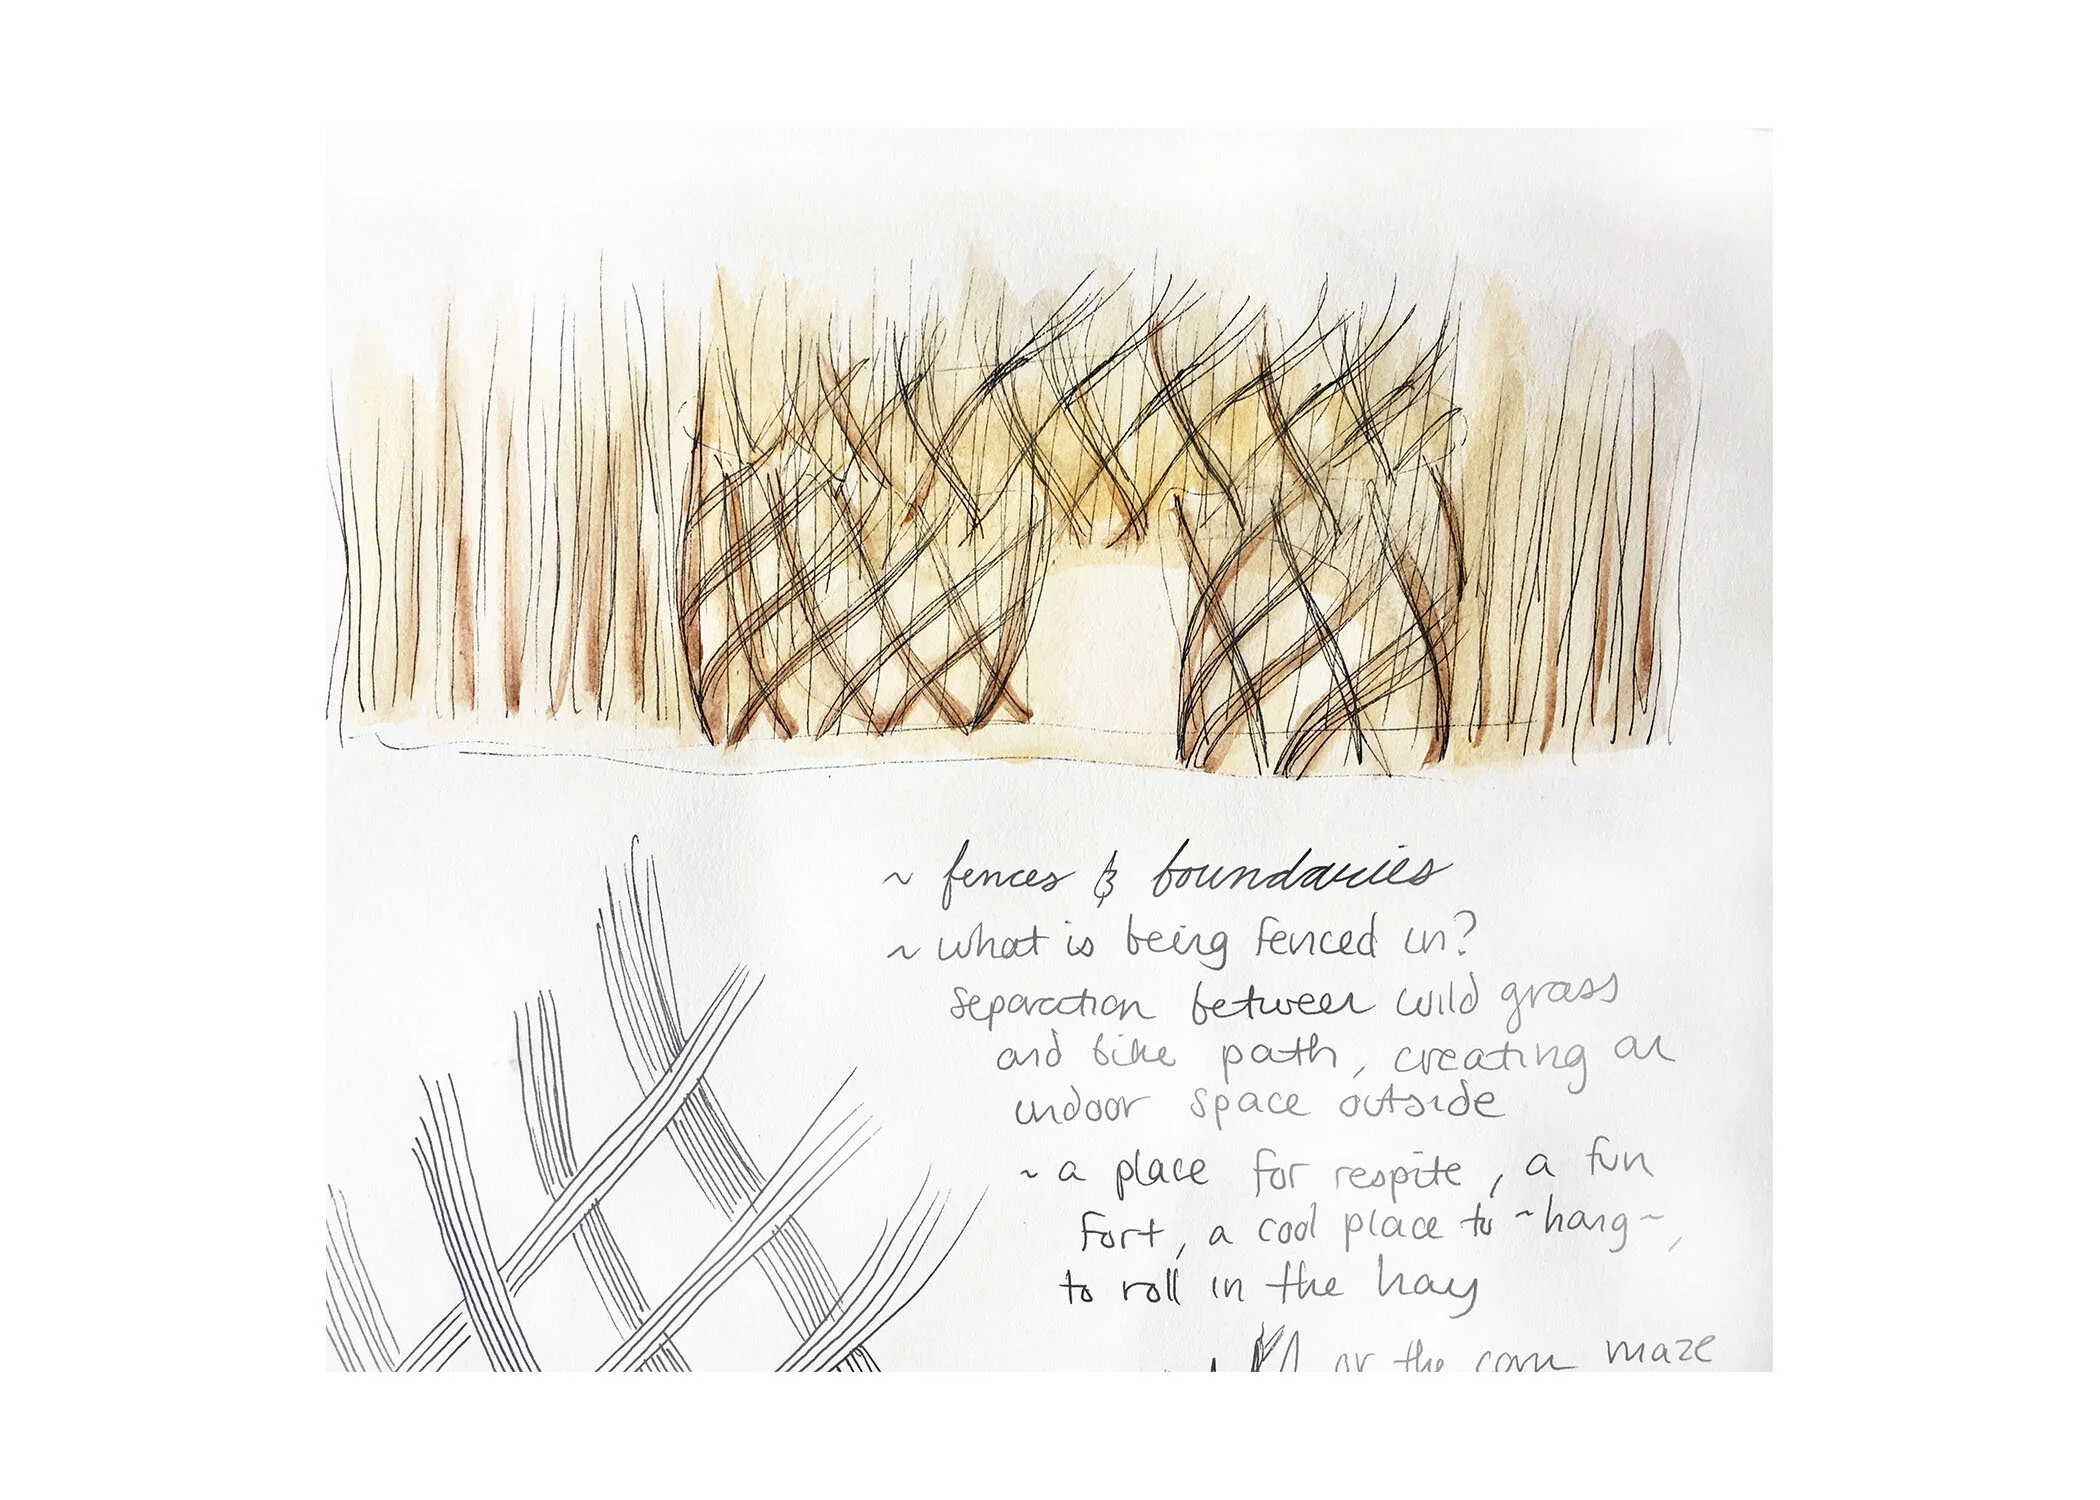 ~ fences & boundaries
~ what is being fenced in?
separation between wild grass
and bike path, creating an
indoor space outside
~ a place for respite, a fun
fort, a cool place to ~hang~,
to roll in the hay
or the corn maze